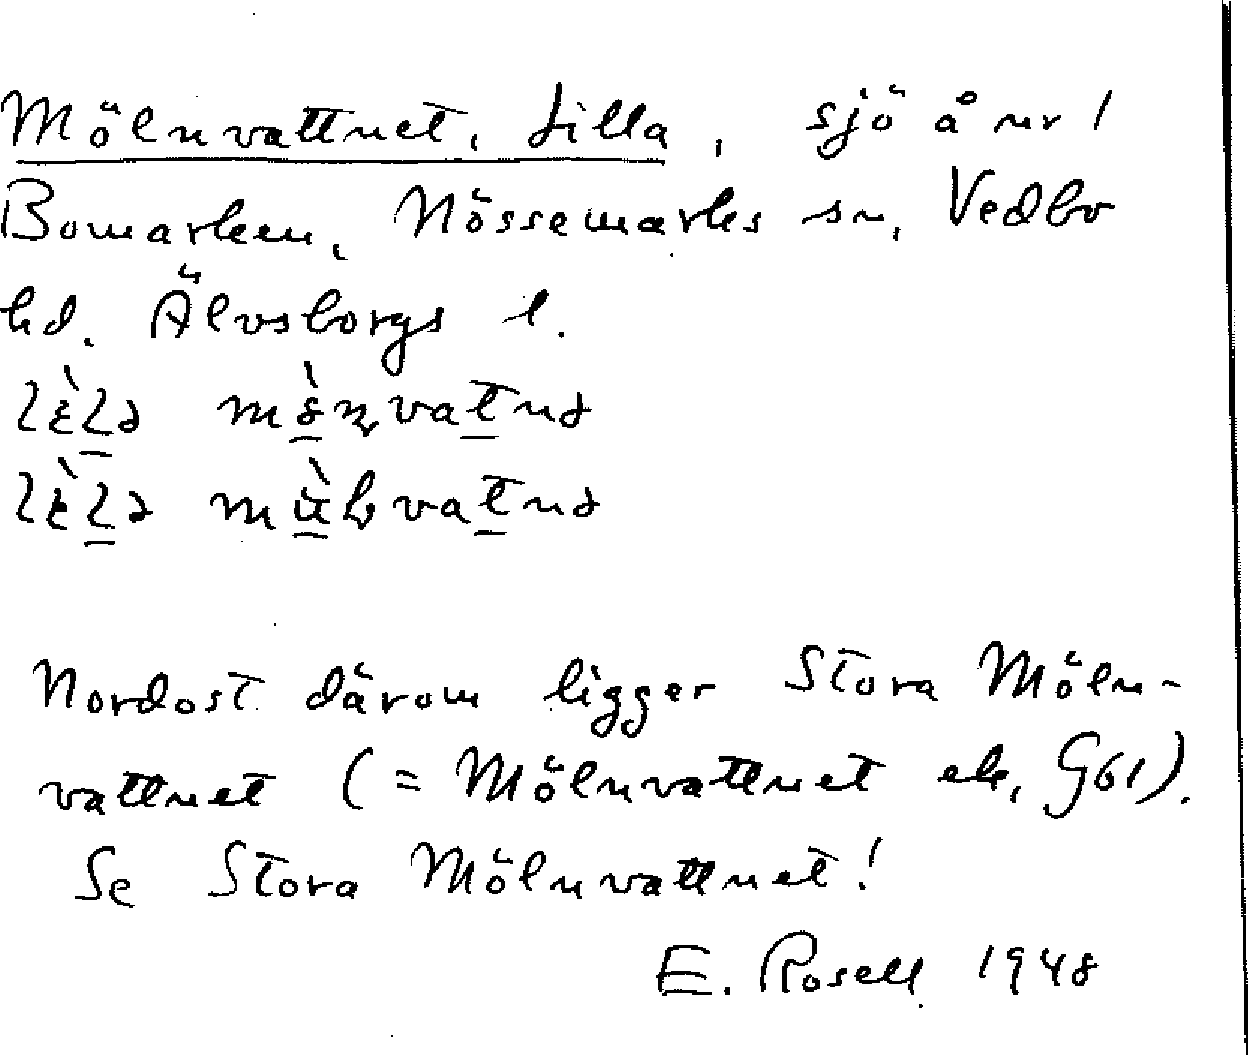 Mölnvattnet, Lilla, sjö å nr 1
Bomarken, Nössemarks sn, Vedbo
hd. Älvsborgs l.
Nordost därom ligger Stora Möln-
vattnet (= Mölnvattnet ek, G61).
Se Stora Mölnvattnet!
E. Rosell 1948